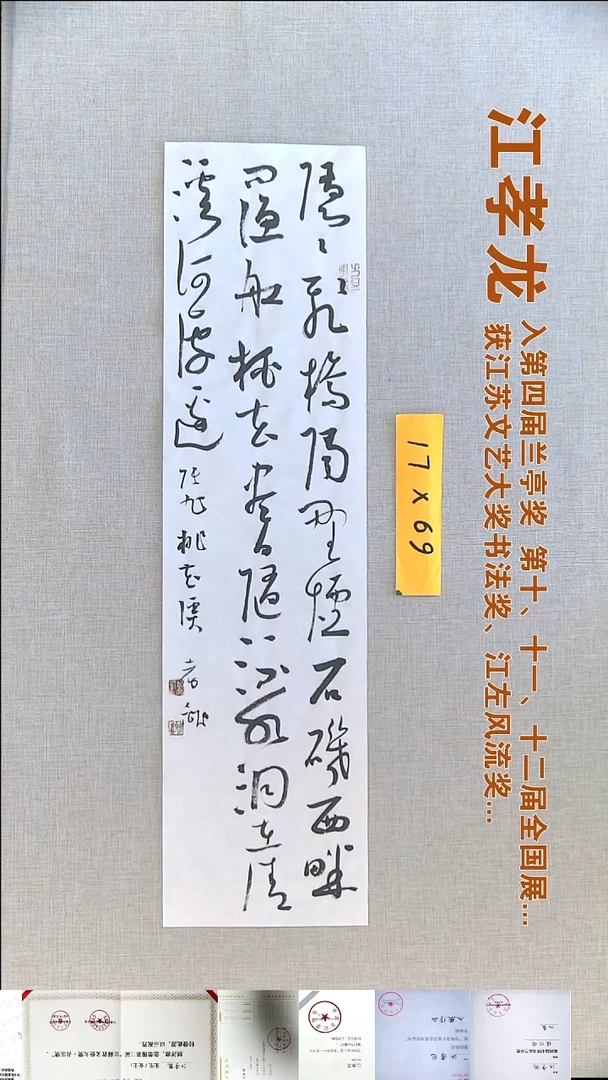 江孝龙
入第四届兰亭奖 第十、十一、十二届全国展...
获江苏文艺大奖书法奖、江左风流奖...
17 x 69
隱〻飛橋隔野煙石磯西畔
問漁船桃花盡日隨流水洞在清
溪何處邊 張旭桃花溪 孝龍